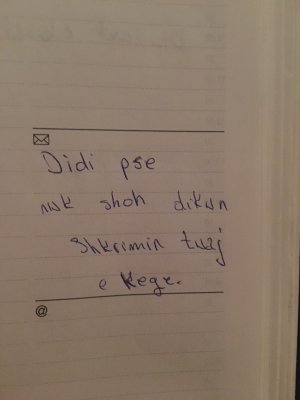 Didi pse
nuk shoh dikun
Shkrimin tuaj
e Kege.
@